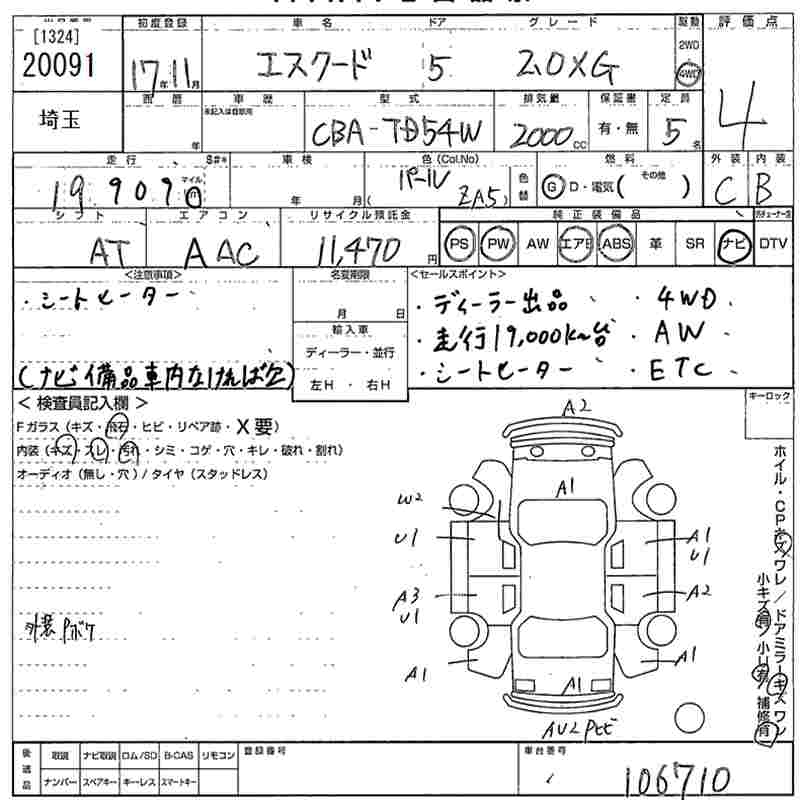 [1324]
20091
初度登録
17年11月
車名
エスクード
ドア
5
グレード
2.0XG
駆動
2WD
4WD
評価点
4
埼玉
西暦
年
車歴
未記入は自家用
型式
CBA-TD54W
排気量
2000cc
保証書
有・無
定員
5名
走行
19909
マイル
S#*
車検
年 月
色(Col,No)
パール
( ZA5)
色替
燃料
G D・電気( その他 )
外装
C
内装
B
シフト
AT
エアコン
AAC
リサイクル預託金
11,470円
純正装備品
PS PW AW エアB ABS 革 SR ナビ DTV
<注意事項>
・シートヒーター
(ナビ備品車内なければ欠)
名変期限
月 日
輸入車
ディーラー・並行
左H・右H
<セールスポイント>
・ディーラー出品 ・4WD
・走行19,000km台 ・AW
・シートヒーター ・ETC
<検査員記入欄>
Fガラス(キズ・飛石・ヒビ・リペア跡・X要)
内装(キズ・スレ・汚れ・シミ・コゲ・穴・キレ・破れ・割れ)
オーディオ(無し・穴)/タイヤ(スタッドレス)
外装Pボケ
キーロック
A2
A1
W2
U1
A1
U1
A3
U1
A2
A1
A1
A1
AU2Pヒビ
ホイル・CPキズワレ/ドアミラーキズワレ
小キズ有/小U有/補修有
後送品
取説 ナビ取説 ロム/SD B-CAS リモコン
ナンバー スペアキー キーレス スマートキー
登録番号
車台番号
106710